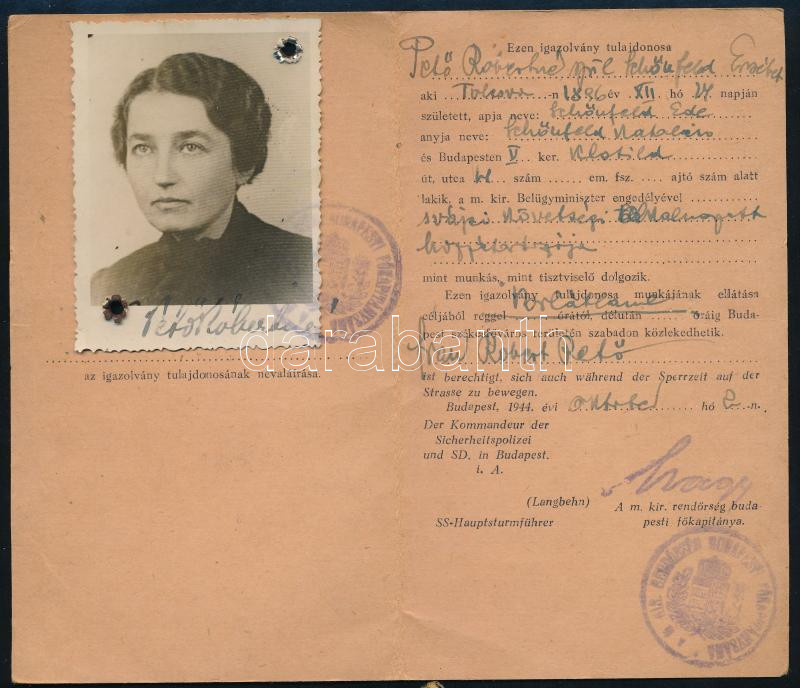 Pető Róbertné
az igazolvány tulajdonosának névaláírása.
Ezen igazolvány tulajdonosa
Pető Róbertné szül Schönfeld Erzsébet
aki Tolcsva -n 1896 év XII hó 24 napján
született, apja neve: Schönfeld Ede
anyja neve: Schönfeld Natália
és Budapesten V. ker. Klotild
út, utca szám em. fsz. ajtó szám alatt
lakik, a m. kir. Belügyminiszter engedélyével
svájci követségi alkalmazott
hozzátartozója
mint munkás, mint tisztviselő dolgozik.
Ezen igazolvány tulajdonosa munkájának ellátása
céljából reggel korlátlanul órától, délután óráig Buda-
pest székesfőváros területén szabadon közlekedhetik.
Frau Robert Pető
ist berechtigt, sich auch während der Sperrzeit auf der
Strasse zu bewegen.
Budapest, 1944. évi október hó 2 -n.
Der Kommandeur der
Sicherheitspolizei
und SD. in Budapest.
i. A.
(Langbehn)
SS-Hauptsturmführer
A m. kir. rendőrség buda-
pesti főkapitánya.
darabanth